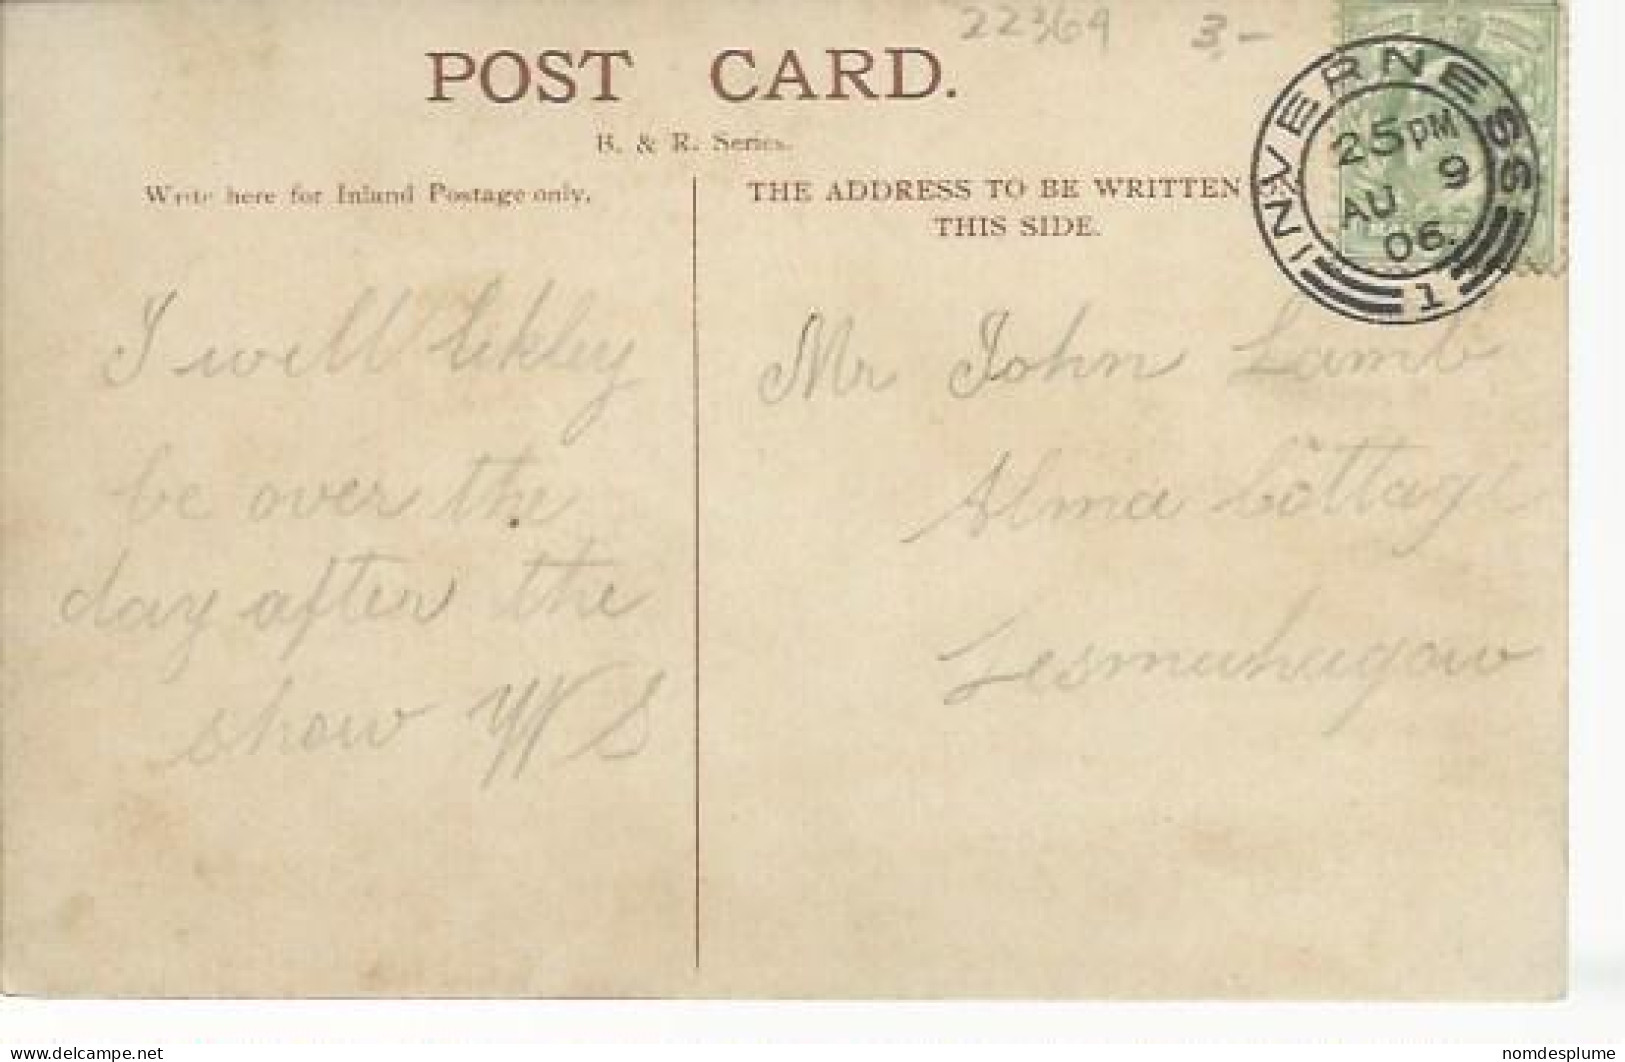 22369 3,-
POST CARD.
B. & R. Series.
Write here for Inland Postage only.
THE ADDRESS TO BE WRITTEN
THIS SIDE.
INVERNESS
25 PM
9
AU
06.
1
I will likley
be over the
day after the
show W S
Mr John Lamb
Alma Cottage
Lesmahagow
nomdesplume
www.delcampe.net